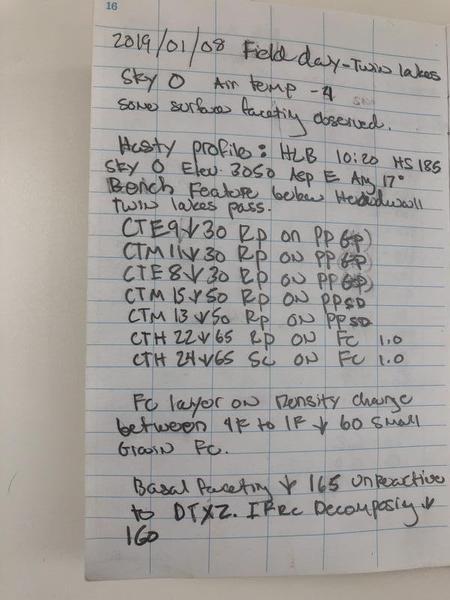 16
2019/01/08 Field day - Twin lakes
Sky O Air temp -4
some surface faceting observed.
Hasty profile: HLB 10:20 HS 185
Sky O Elev. 3050 Asp E Ang 17°
Bench Feature below Headwall
Twin lakes pass.
CTE9↓30 RP on PP
CTM11↓30 RP ON PP
CTE8↓30 RP ON PP
CTM 15↓50 RP ON PP SD
CTM 13↓50 RP ON PP SD
CTH 22↓65 RP ON FC 1.0
CTH 24↓65 SC ON FC 1.0
FC layer on Density change
between 4F to 1F ↓ 60 small
Grain FC.
Basal faceting ↓ 165 unreactive
to DTX2. IFRC Decomposing ↓
160